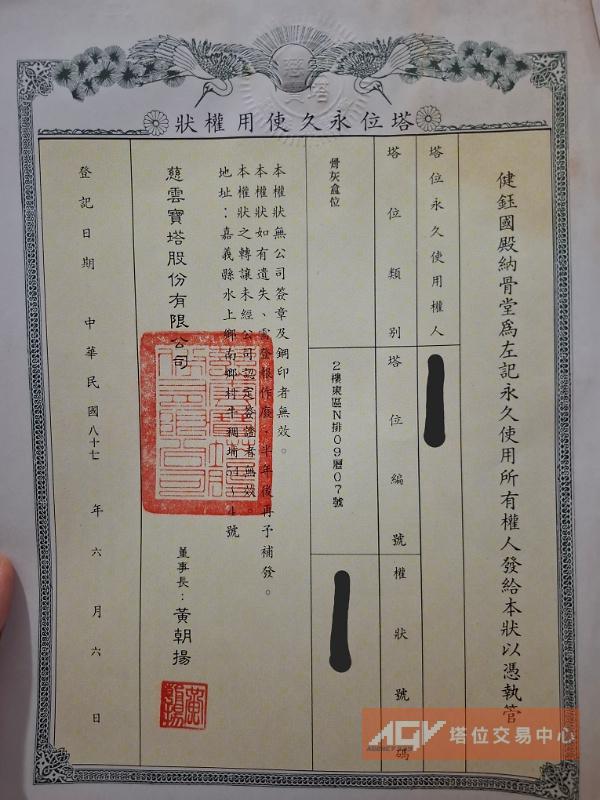 塔位永久使用權狀
健鈺國殿納骨堂為左記永久使用所有權人發給本狀以憑執管
塔位永久使用權人
塔位類別
骨灰盒位
塔位編號
2樓東區N排09層07號
權狀號碼
本權狀無公司簽章及鋼印者無效。
本權狀如有遺失、登報作廢、半年後再予補發。
本權狀之轉讓未經公司認定簽證者無效
地址：嘉義縣水上鄉南鄉村牛稠埔 號
慈雲寶塔股份有限公司
董事長：黃朝揚
登記日期 中華民國八十七年六月六日
AGV 塔位交易中心